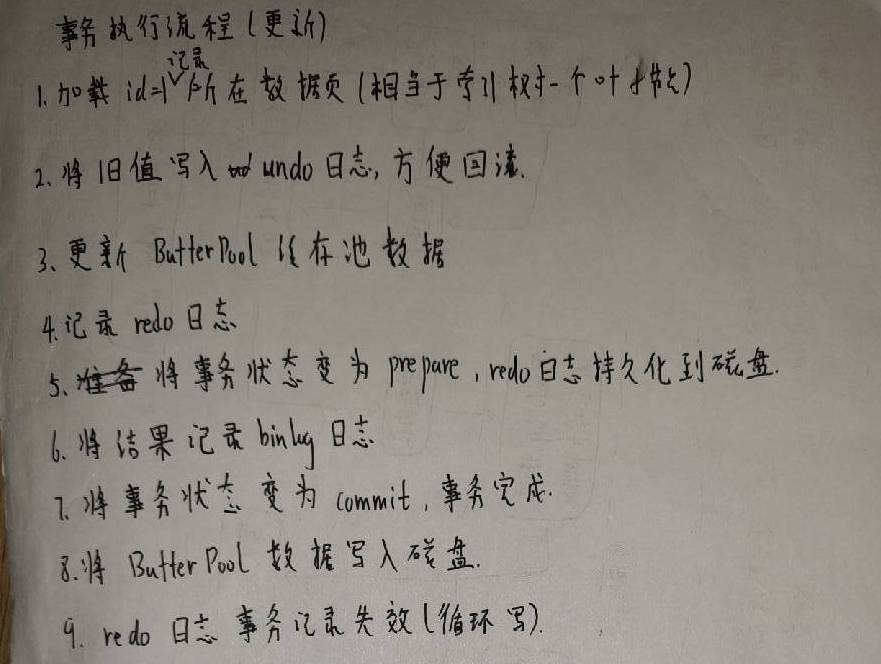 事务执行流程(更新)
1.加载 id=1记录所在数据页(相当于索引树一个叶子节点)
2、将旧值写入undo日志,方便回滚.
3、更新 ButterPool 缓存池数据
4.记录 redo 日志
5、准备 将事务状态变为 prepare,redo日志持久化到磁盘.
6.将结果记录binlog日志
7.将事务状态变为 commit,事务完成.
8.将 Butter Pool 数据写入磁盘.
9. redo 日志事务记录失效(循环写).